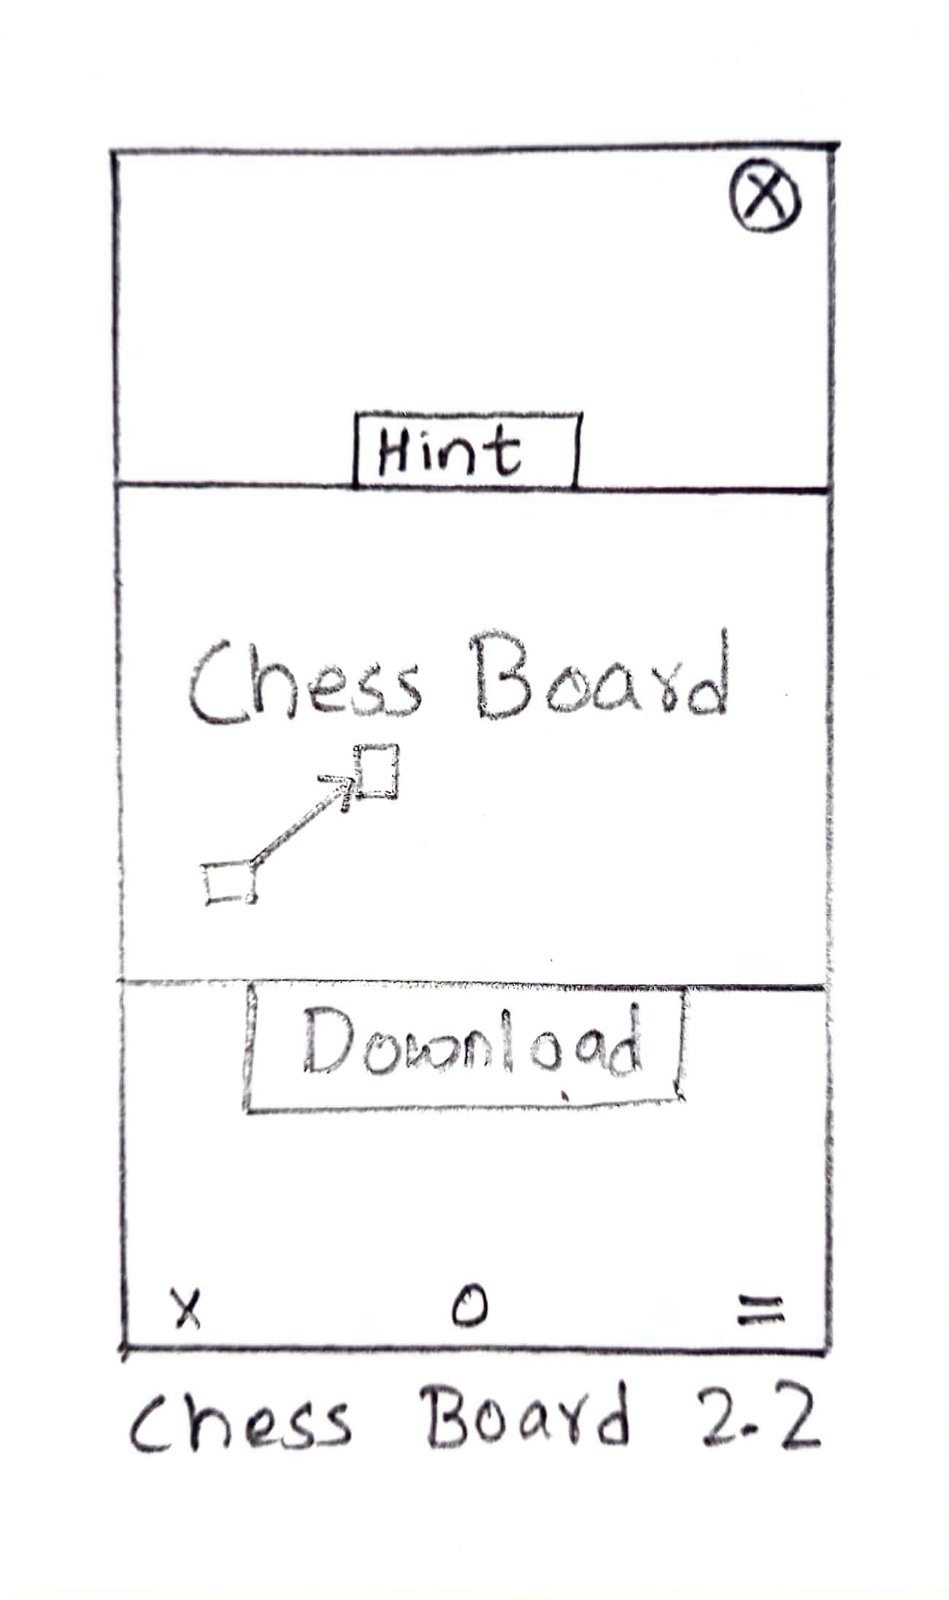 X
Hint
Chess Board
Download
X O =
Chess Board 2.2